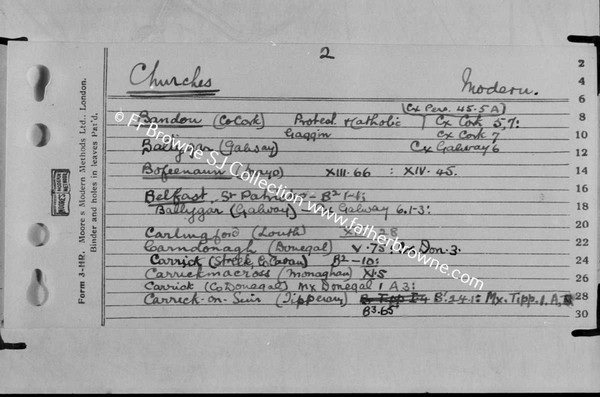 2
Churches Modern.
(Cx Pers. 45.5A)
Bandon (Co Cork) Protest & Catholic Cx Cork 5,7:
Gaggin Cx Cork 7
Ballygar (Galway) Cx Galway 6
Bofeenaun XIII.66 : XIV.45.
Belfast, St Patrick's B2
Ballygar (Galway) Galway 6.1-3:
Carlingford (Louth) 28
Carndonagh (Donegal) V.75: Don.3.
Carrick (Street, Co Cavan) B2-10:
Carrickmacross (Monaghan) X.5
Carrick (Co Donegal) Mx Donegal 1 A3:
Carrick-on-Suir (Tipperary) B1.24.1: Mx. Tipp. 1. A,
B3.65
Form 3-HR. Moore's Modern Methods Ltd., London.
Binder and holes in leaves Pat'd.
2
4
6
8
10
12
14
16
18
20
22
24
26
28
30
© Fr Browne SJ Collection www.fatherbrowne.com